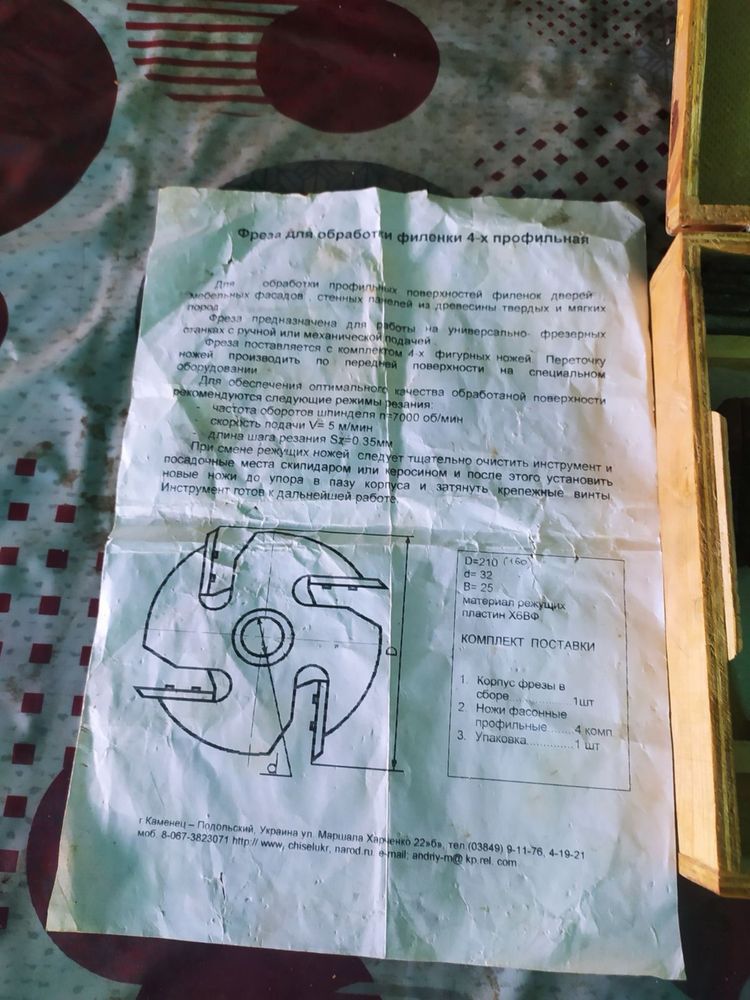 Фреза для обработки филенки 4-х профильная
Для обработки профильных поверхностей филенок дверей ,
мебельных фасадов , стенных панелей из древесины твердых и мягких
пород
Фреза предназначена для работы на универсально- фрезерных
станках с ручной или механической подачей .
Фреза поставляется с комплектом 4-х фигурных ножей. Переточку
ножей производить по передней поверхности на специальном
оборудовании
Для обеспечения оптимального качества обработаной поверхности
рекомендуются следующие режимы резания:
- частота оборотов шпинделя n=7000 об/мин
скорость подачи V= 5 м/мин
- длина шага резания Sz=0 35мм
При смене режущих ножей следует тщательно очистить инструмент и
посадочные места скипидаром или керосином и после этого установить
новые ножи до упора в пазу корпуса и затянуть крепежные винты.
Инструмент готов к дальнейшей работе.
D
d
D=210 (160
d= 32
B= 25
материал режущих
пластин Х6ВФ
КОМПЛЕКТ ПОСТАВКИ
1. Корпус фрезы в
сборе..................1шт
2. Ножи фасонные
профильные.......4 комп
3. Упаковка.............1 шт
г Каменец – Подольский, Украина ул. Маршала Харченко 22»б», тел (03849) 9-11-76, 4-19-21
моб. 8-067-3823071 http:// www, chiselukr, narod.ru. e-mail; andriy-m@ kp.rel. com